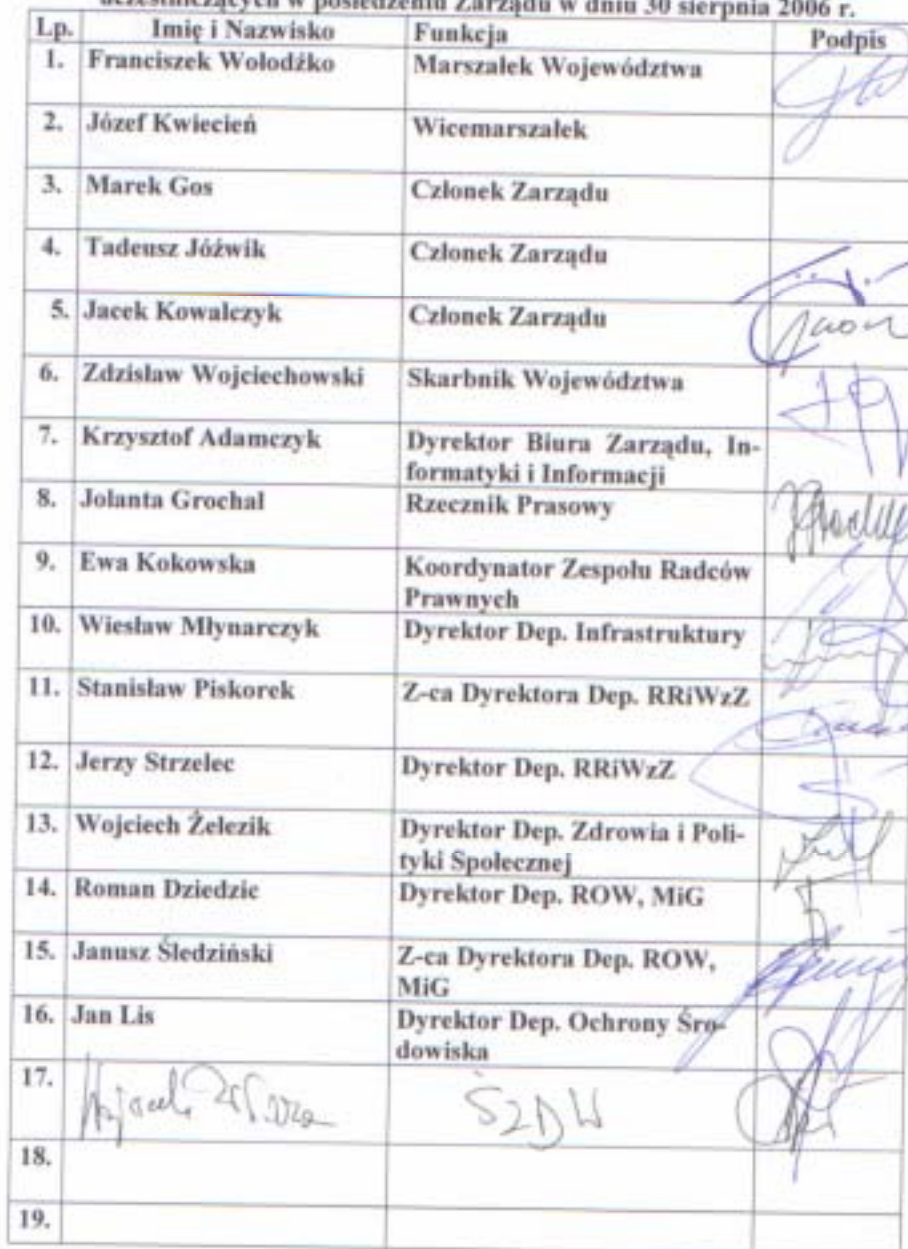 uczestniczących w posiedzeniu Zarządu w dniu 30 sierpnia 2006 r.
Lp. Imię i Nazwisko Funkcja Podpis
1. Franciszek Wołodźko Marszałek Województwa
2. Józef Kwiecień Wicemarszałek
3. Marek Gos Członek Zarządu
4. Tadeusz Jóźwik Członek Zarządu
5. Jacek Kowalczyk Członek Zarządu
6. Zdzisław Wojciechowski Skarbnik Województwa
7. Krzysztof Adamczyk Dyrektor Biura Zarządu, In-
formatyki i Informacji
8. Jolanta Grochal Rzecznik Prasowy
9. Ewa Kokowska Koordynator Zespołu Radców
Prawnych
10. Wiesław Młynarczyk Dyrektor Dep. Infrastruktury
11. Stanisław Piskorek Z-ca Dyrektora Dep. RRiWzZ
12. Jerzy Strzelec Dyrektor Dep. RRiWzZ
13. Wojciech Żelezik Dyrektor Dep. Zdrowia i Poli-
tyki Społecznej
14. Roman Dziedzic Dyrektor Dep. ROW, MiG
15. Janusz Śledziński Z-ca Dyrektora Dep. ROW,
MiG
16. Jan Lis Dyrektor Dep. Ochrony Śro-
dowiska
17. ŚZDW
18.
19.